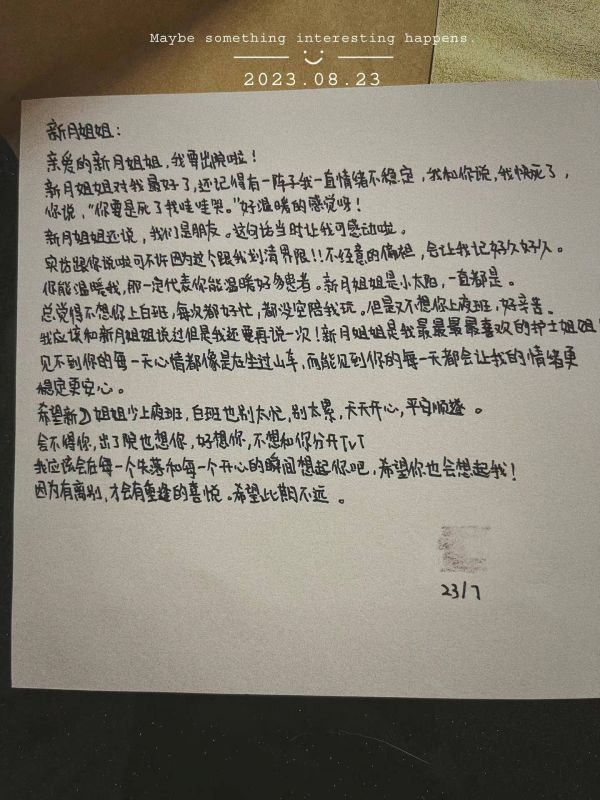 Maybe something interesting happens.
2023.08.23
新月姐姐：
亲爱的新月姐姐，我要出院啦！
新月姐姐对我最好了，还记得有一阵子我一直情绪不稳定，我和你说，我快死了，
你说，“你要是死了我哇哇哭。”好温暖的感觉呀！
新月姐姐还说，我们是朋友。这句话当时让我可感动啦。
实话跟你说哦可不许因为这个跟我划清界限！！不经意的偏袒，会让我记好久好久。
你能温暖我，那一定代表你能温暖好多患者。新月姐姐是小太阳，一直都是。
总觉得不想你上白班，每次都好忙，都没空陪我玩。但是又不想你上夜班，好辛苦。
我应该和新月姐姐说过但是我还要再说一次！新月姐姐是我最最最最喜欢的护士姐姐！
见不到你的每一天心情都像是在坐过山车，而能见到你的每一天都会让我的情绪更
稳定更安心。
希望新月姐姐少上夜班，白班也别太忙，别太累，天天开心，平安顺遂。
舍不得你，出了院也想你，好想你，不想和你分开TvT
我应该会在每一个失落和每一个开心的瞬间想起你吧，希望你也会想起我！
因为有离别，才会有重逢的喜悦。希望此期不远。
23/7